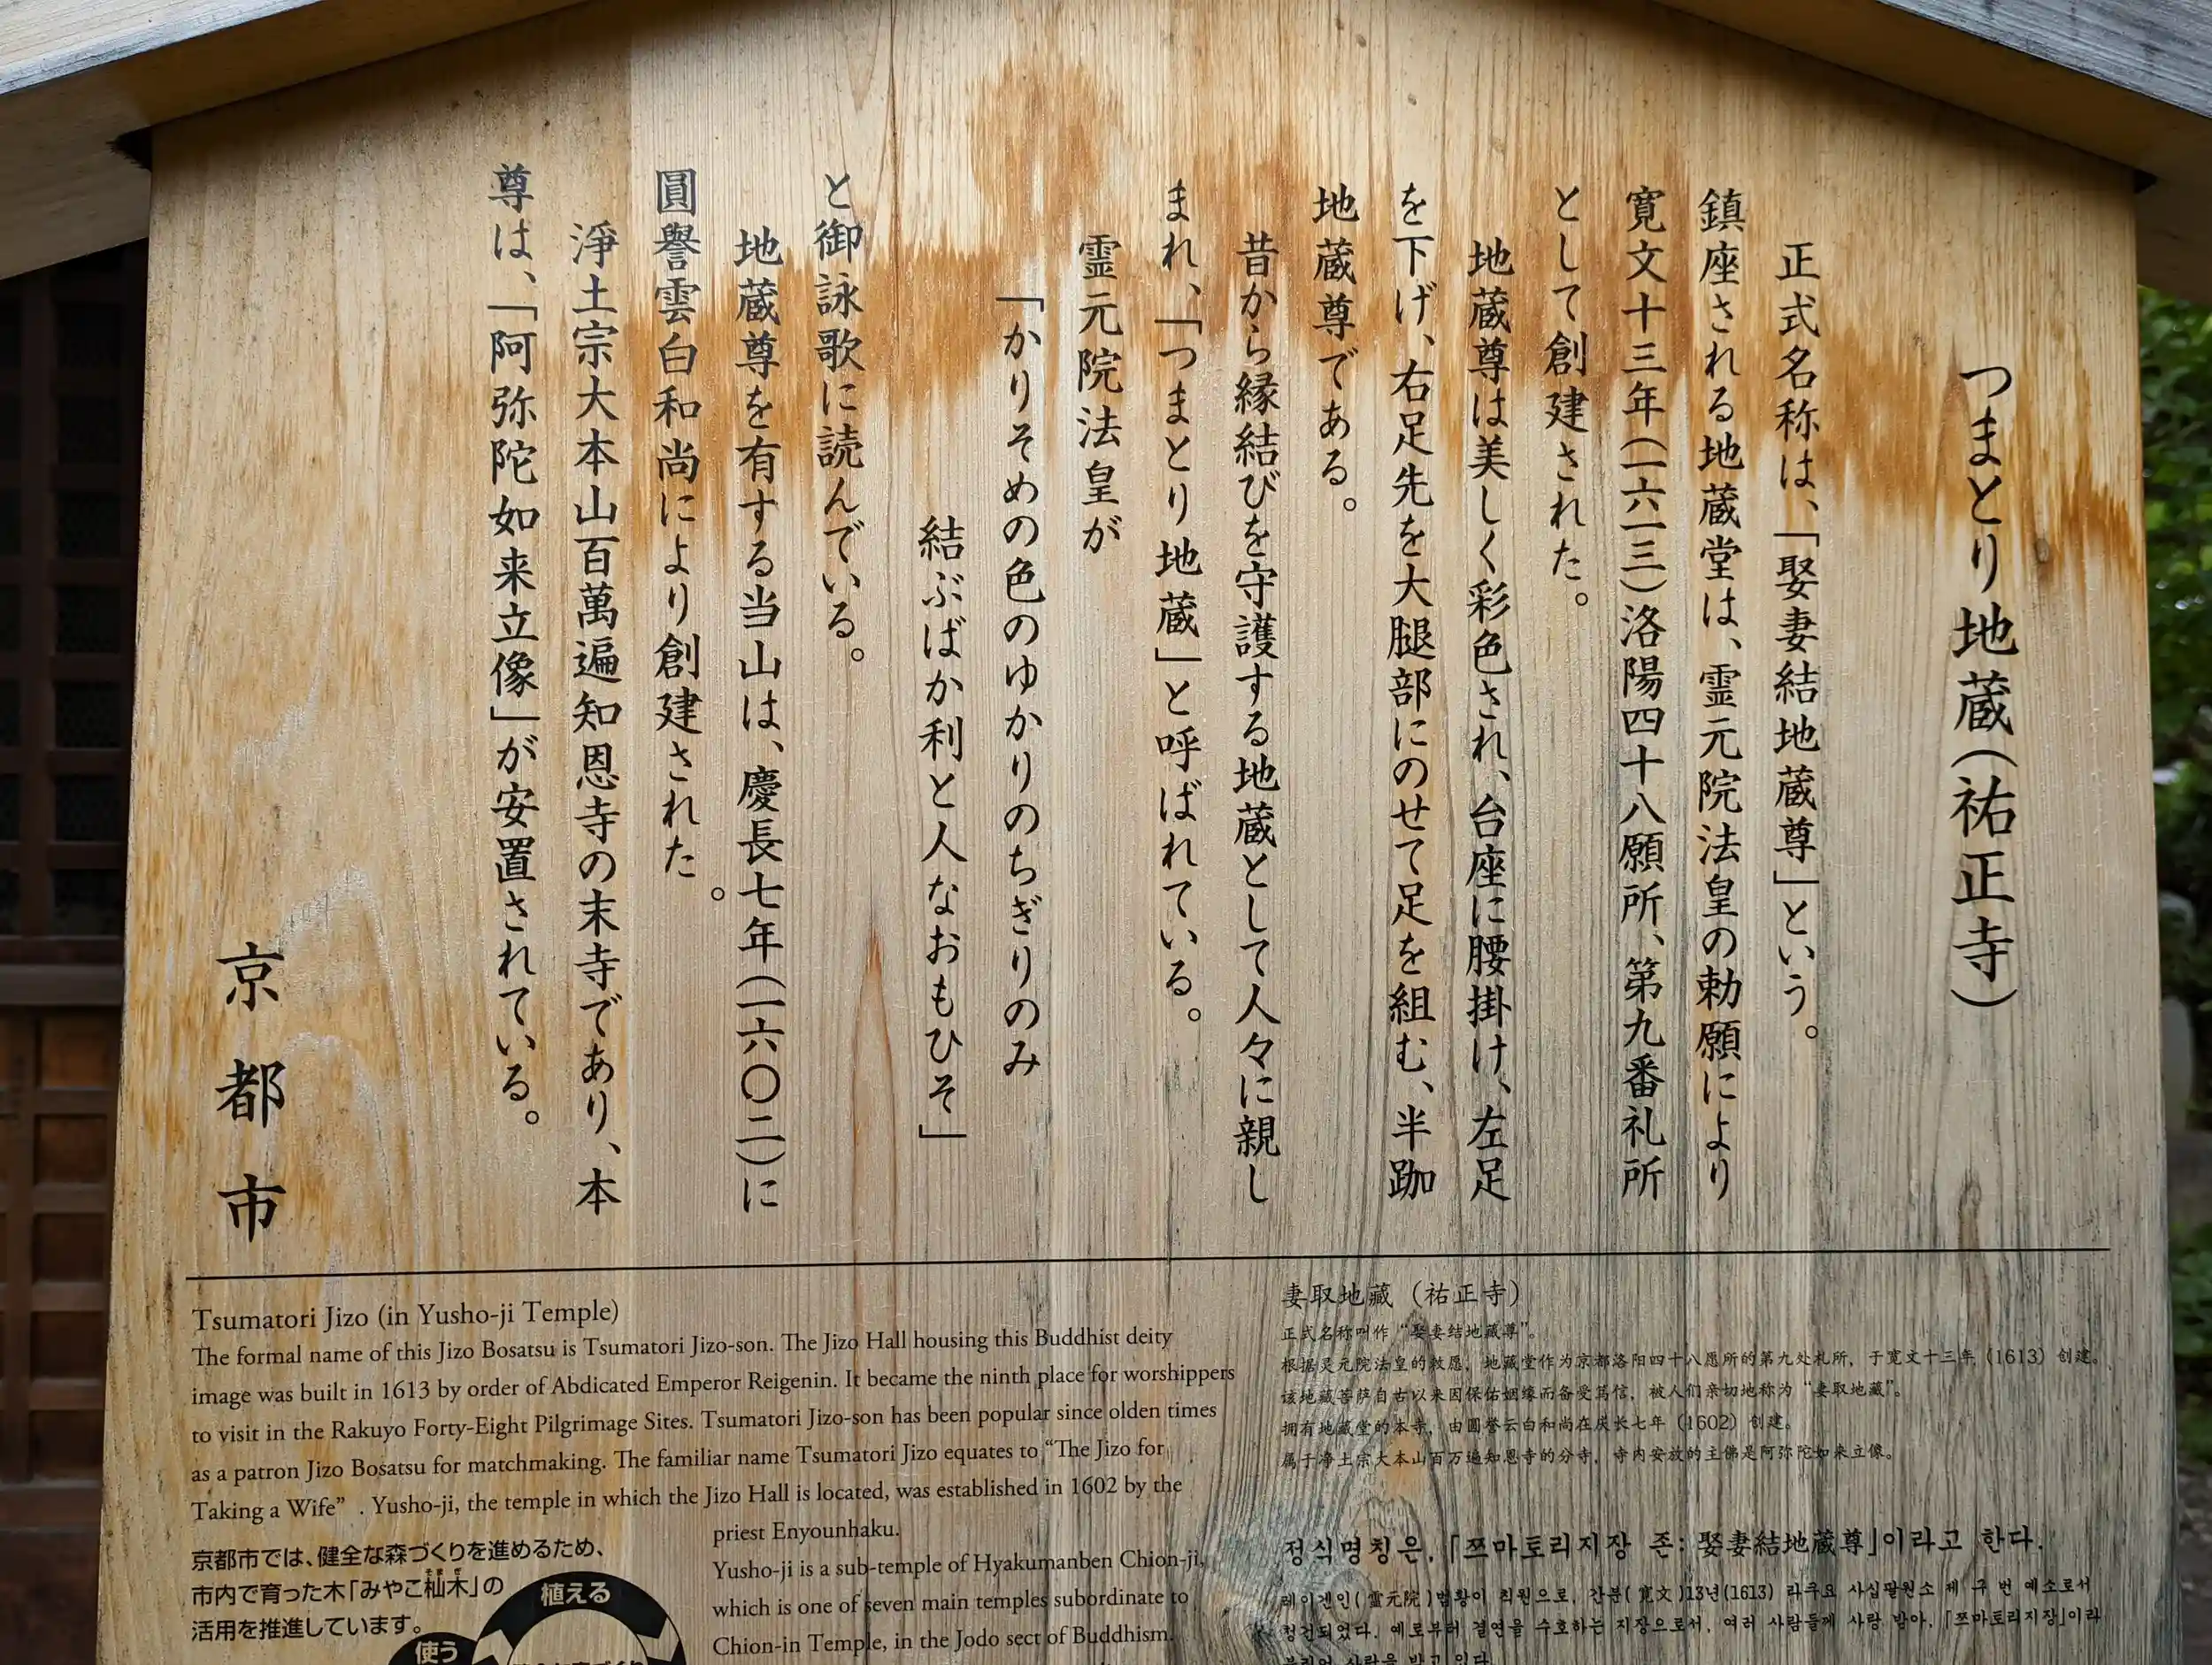 つまとり地蔵(祐正寺)
正式名称は、「娶妻結地蔵尊」という。
鎮座される地蔵堂は、霊元院法皇の勅願により
寛文十三年(一六一三)洛陽四十八願所、第九番礼所
として創建された。
地蔵尊は美しく彩色され、台座に腰掛け、左足
を下げ、右足先を大腿部にのせて足を組む、半跏
地蔵尊である。
昔から縁結びを守護する地蔵として人々に親し
まれ、「つまとり地蔵」と呼ばれている。
霊元院法皇が
「かりそめの色のゆかりのちぎりのみ
結ぶばか利と人なおもひそ」
と御詠歌に読んでいる。
地蔵尊を有する当山は、慶長七年(一六〇二)に
圓譽雲白和尚により創建された。
淨土宗大本山百萬遍知恩寺の末寺であり、本
尊は、「阿弥陀如来立像」が安置されている。
京都市
Tsumatori Jizo (in Yusho-ji Temple)
The formal name of this Jizo Bosatsu is Tsumatori Jizo-son. The Jizo Hall housing this Buddhist deity
image was built in 1613 by order of Abdicated Emperor Reigenin. It became the ninth place for worshippers
to visit in the Rakuyo Forty-Eight Pilgrimage Sites. Tsumatori Jizo-son has been popular since olden times
as a patron Jizo Bosatsu for matchmaking. The familiar name Tsumatori Jizo equates to “The Jizo for
Taking a Wife” . Yusho-ji, the temple in which the Jizo Hall is located, was established in 1602 by the
priest Enyounhaku.
Yusho-ji is a sub-temple of Hyakumanben Chion-ji,
which is one of seven main temples subordinate to
Chion-in Temple, in the Jodo sect of Buddhism.
京都市では、健全な森づくりを進めるため、
市内で育った木「みやこ杣木」の
活用を推進しています。
植える
使う
妻取地藏（祐正寺）
正式名称叫作“娶妻结地藏尊”。
根据灵元院法皇的敕愿，地藏堂作为京都洛阳四十八愿所的第九处札所，于宽文十三年（1613）创建。
该地藏菩萨自古以来因保佑姻缘而备受笃信，被人们亲切地称为“妻取地藏”。
拥有地藏堂的本寺，由圆誉云白和尚在庆长七年（1602）创建。
属于净土宗大本山百万遍知恩寺的分寺，寺内安放的主佛是阿弥陀如来立像。
정식명칭은,「쯔마토리지장 존: 娶妻結地蔵尊」이라고 한다.
레이겐인(霊元院)법황이 칙원으로, 간분(寛文)13년(1613) 라쿠요 사십팔원소 제 구 번 예소로서
창건되었다. 예로부터 결연을 수호하는 지장으로서, 여러 사람들께 사랑 받아,「쯔마토리지장」이라